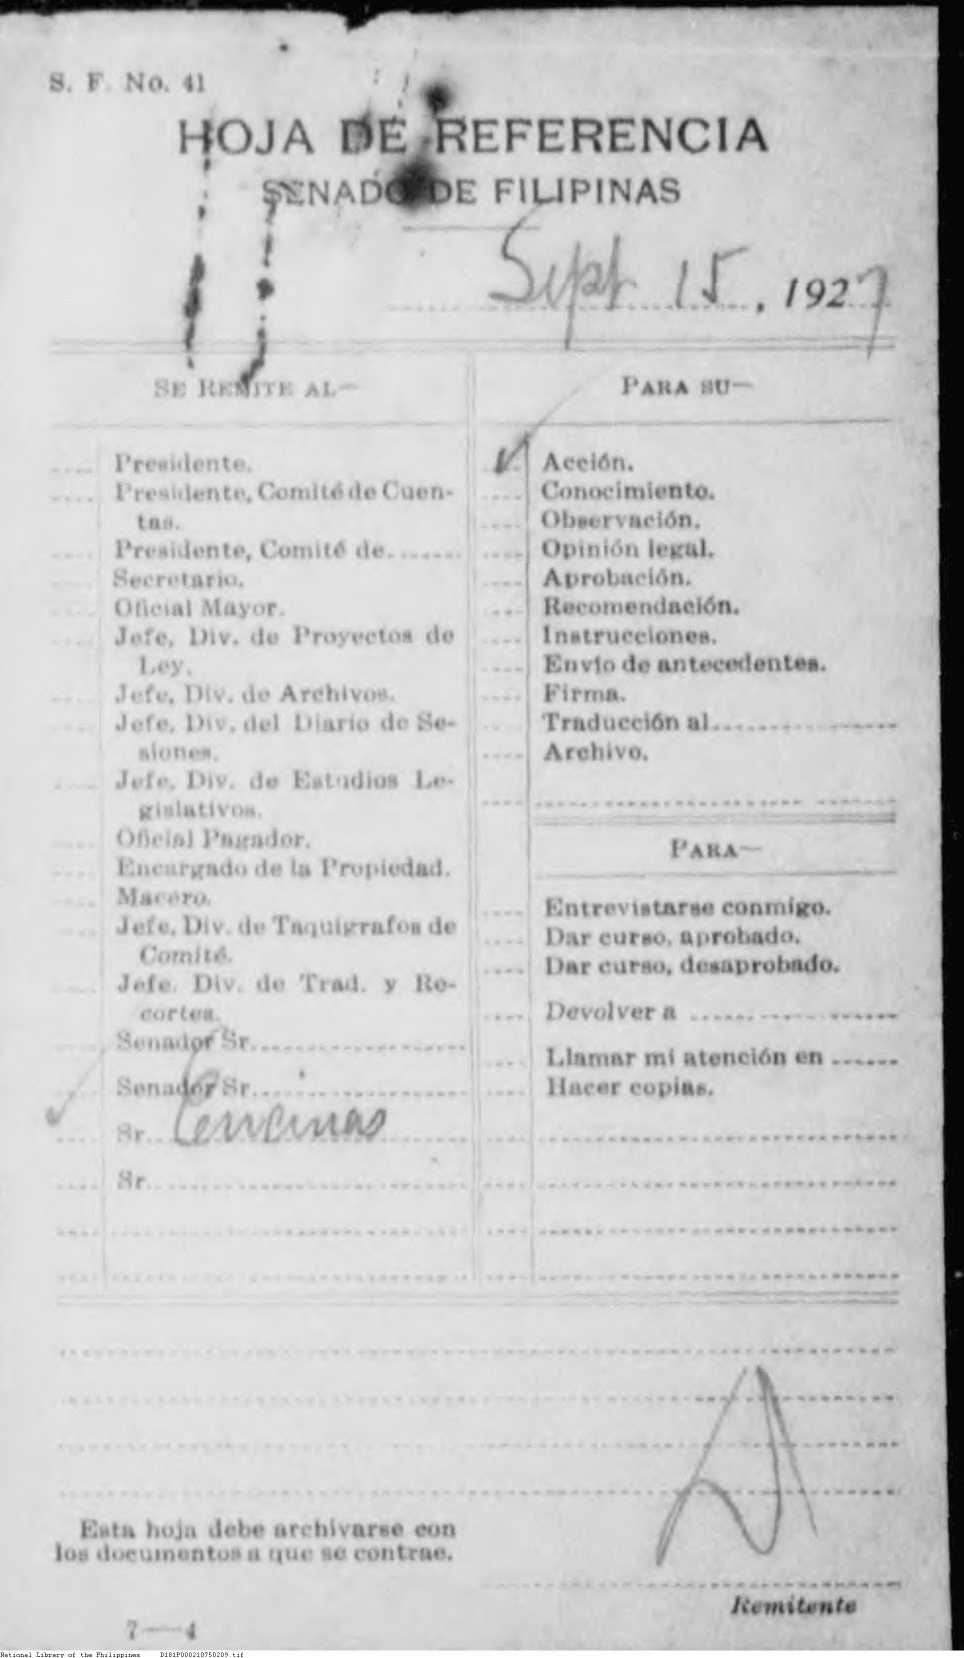 S. F. No. 41
HOJA DE REFERENCIA
SENADO DE FILIPINAS
Sept 15, 1927
SE REMITE AL—
Presidente.
Presidente, Comité de Cuen-
tas.
Presidente, Comité de........
Secretario.
Oficial Mayor.
Jefe, Div. de Proyectos de
Ley.
Jefe, Div. de Archivos.
Jefe, Div. del Diario de Se-
siones.
Jefe, Div. de Estudios Le-
gislativos.
Oficial Pagador.
Encargado de la Propiedad.
Macero.
Jefe, Div. de Taquígrafos de
Comité.
Jefe. Div. de Trad. y Re-
cortes.
Senador Sr.
Senador Sr.
Sr. Encinas
Sr.
PARA SU—
Acción.
Conocimiento.
Observación.
Opinión legal.
Aprobación.
Recomendación.
Instrucciones.
Envío de antecedentes.
Firma.
Traducción al
Archivo.
PARA—
Entrevistarse conmigo.
Dar curso, aprobado.
Dar curso, desaprobado.
Devolver a
Llamar mi atención en
Hacer copias.
Esta hoja debe archivarse con
los documentos a que se contrae.
Remitente
7—4
National Library of the Philippines D181P000210750209.tif